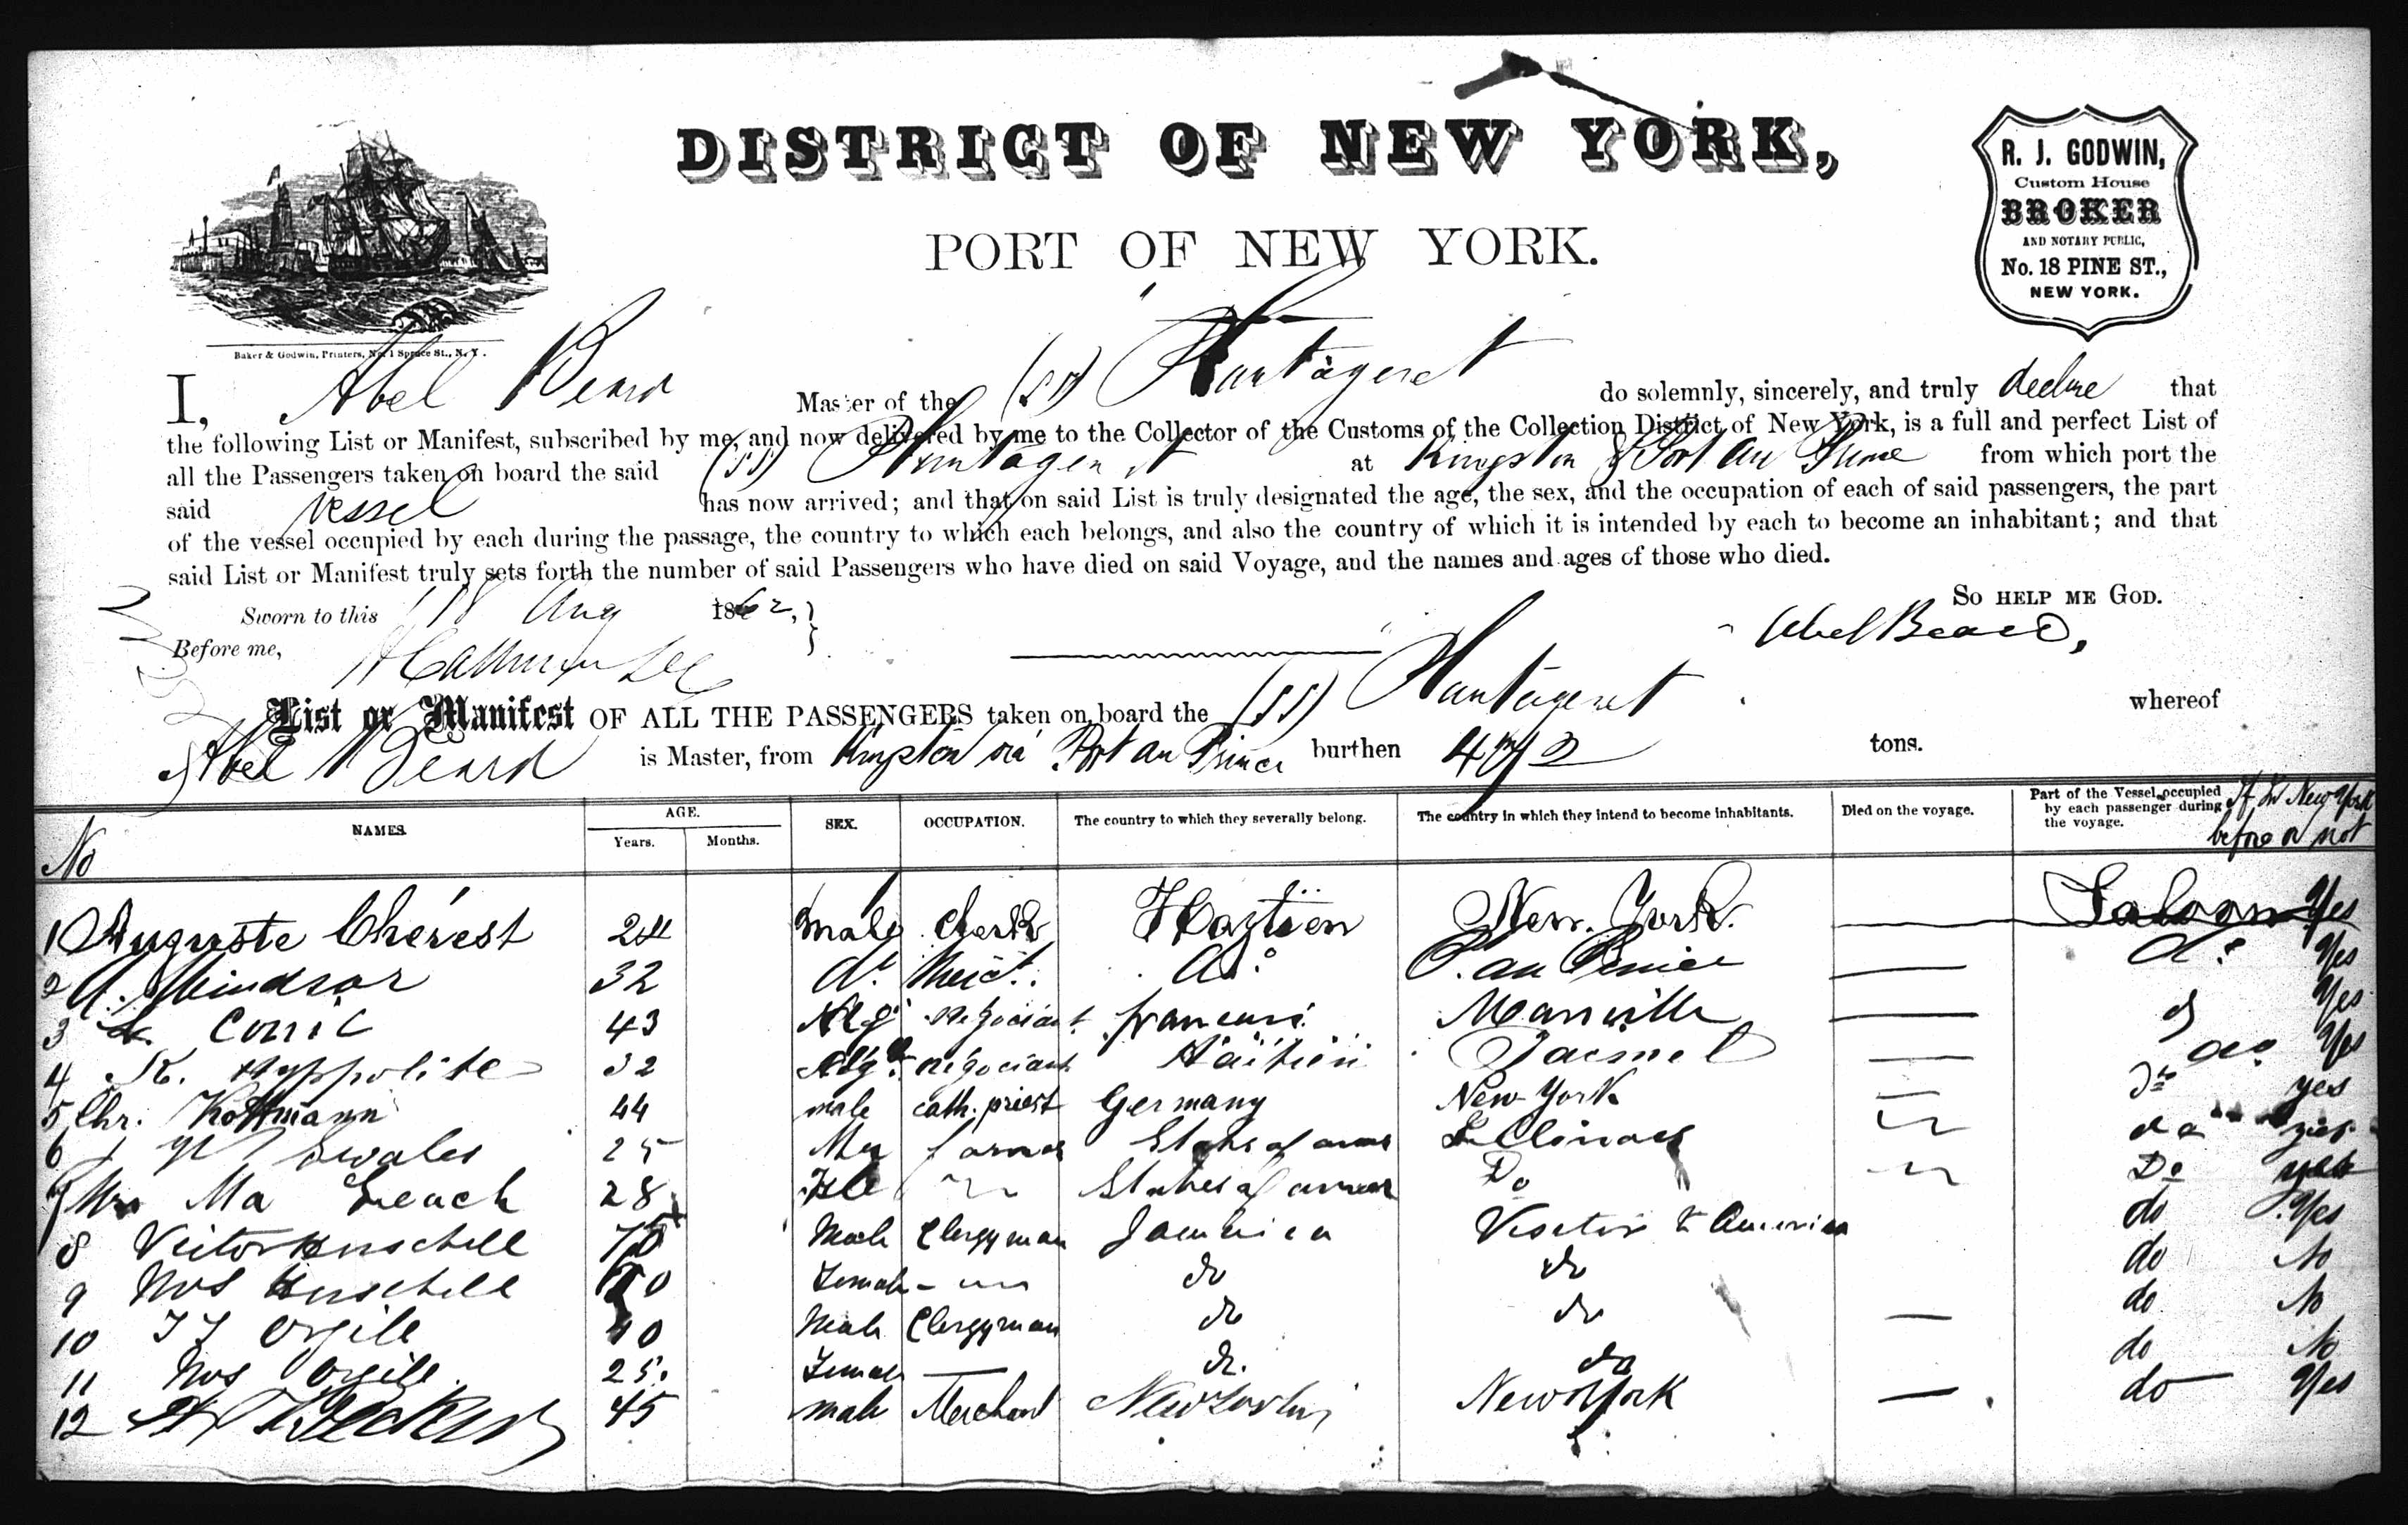 DISTRICT OF NEW YORK,
PORT OF NEW YORK.
R. J. GODWIN,
Custom House
BROKER
AND NOTARY PUBLIC,
No. 18 PINE ST.,
NEW YORK.
Baker & Godwin, Printers, No. 1 Spruce St., N. Y.
I, Abel Beard Master of the (SS) Plantagenet do solemnly, sincerely, and truly declare that
the following List or Manifest, subscribed by me, and now delivered by me to the Collector of the Customs of the Collection District of New York, is a full and perfect List of
all the Passengers taken on board the said (SS) Plantagenet at Kingston & Port au Prince from which port the
said Vessel has now arrived; and that on said List is truly designated the age, the sex, and the occupation of each of said passengers, the part
of the vessel occupied by each during the passage, the country to which each belongs, and also the country of which it is intended by each to become an inhabitant; and that
said List or Manifest truly sets forth the number of said Passengers who have died on said Voyage, and the names and ages of those who died.
Sworn to this 18 Aug 1862, SO HELP ME GOD.
Before me, Abel Beard,
List or Manifest OF ALL THE PASSENGERS taken on board the (SS) Plantagenet whereof
Abel Beard is Master, from Kingston via Port au Prince burthen tons.
No NAMES. AGE. Years. Months. SEX. OCCUPATION. The country to which they severally belong. The country in which they intend to become inhabitants. Died on the voyage. Part of the Vessel occupied by each passenger during the voyage. If in New York before or not
1 Auguste Chérest 24 male Clerk Haïtien New York. — Saloon Yes
2 A. Windsor 32 do Merct. do P. au Prince — do Yes
3 43 negociant francais — do Yes
4 K. Hyppolite 32 negociant Haïtien Jacmel — do Yes
5 Chr. Kottmann 44 male cath. priest Germany New-York — Do yes
6 Swales 25 farmer States of amer Illinoes do yes
7 Mrs Ma Leach 28 States of amer Do Do yes
8 Victor Herschell Male Clergyman Jamaica Visitor to America do Yes
9 Mrs Herschell Female do do do No
10 Orgill 40 Male Clergyman do do — do No
11 Mrs Orgill 25. Female — do. do do No
12 45 male Merchant New York — do Yes